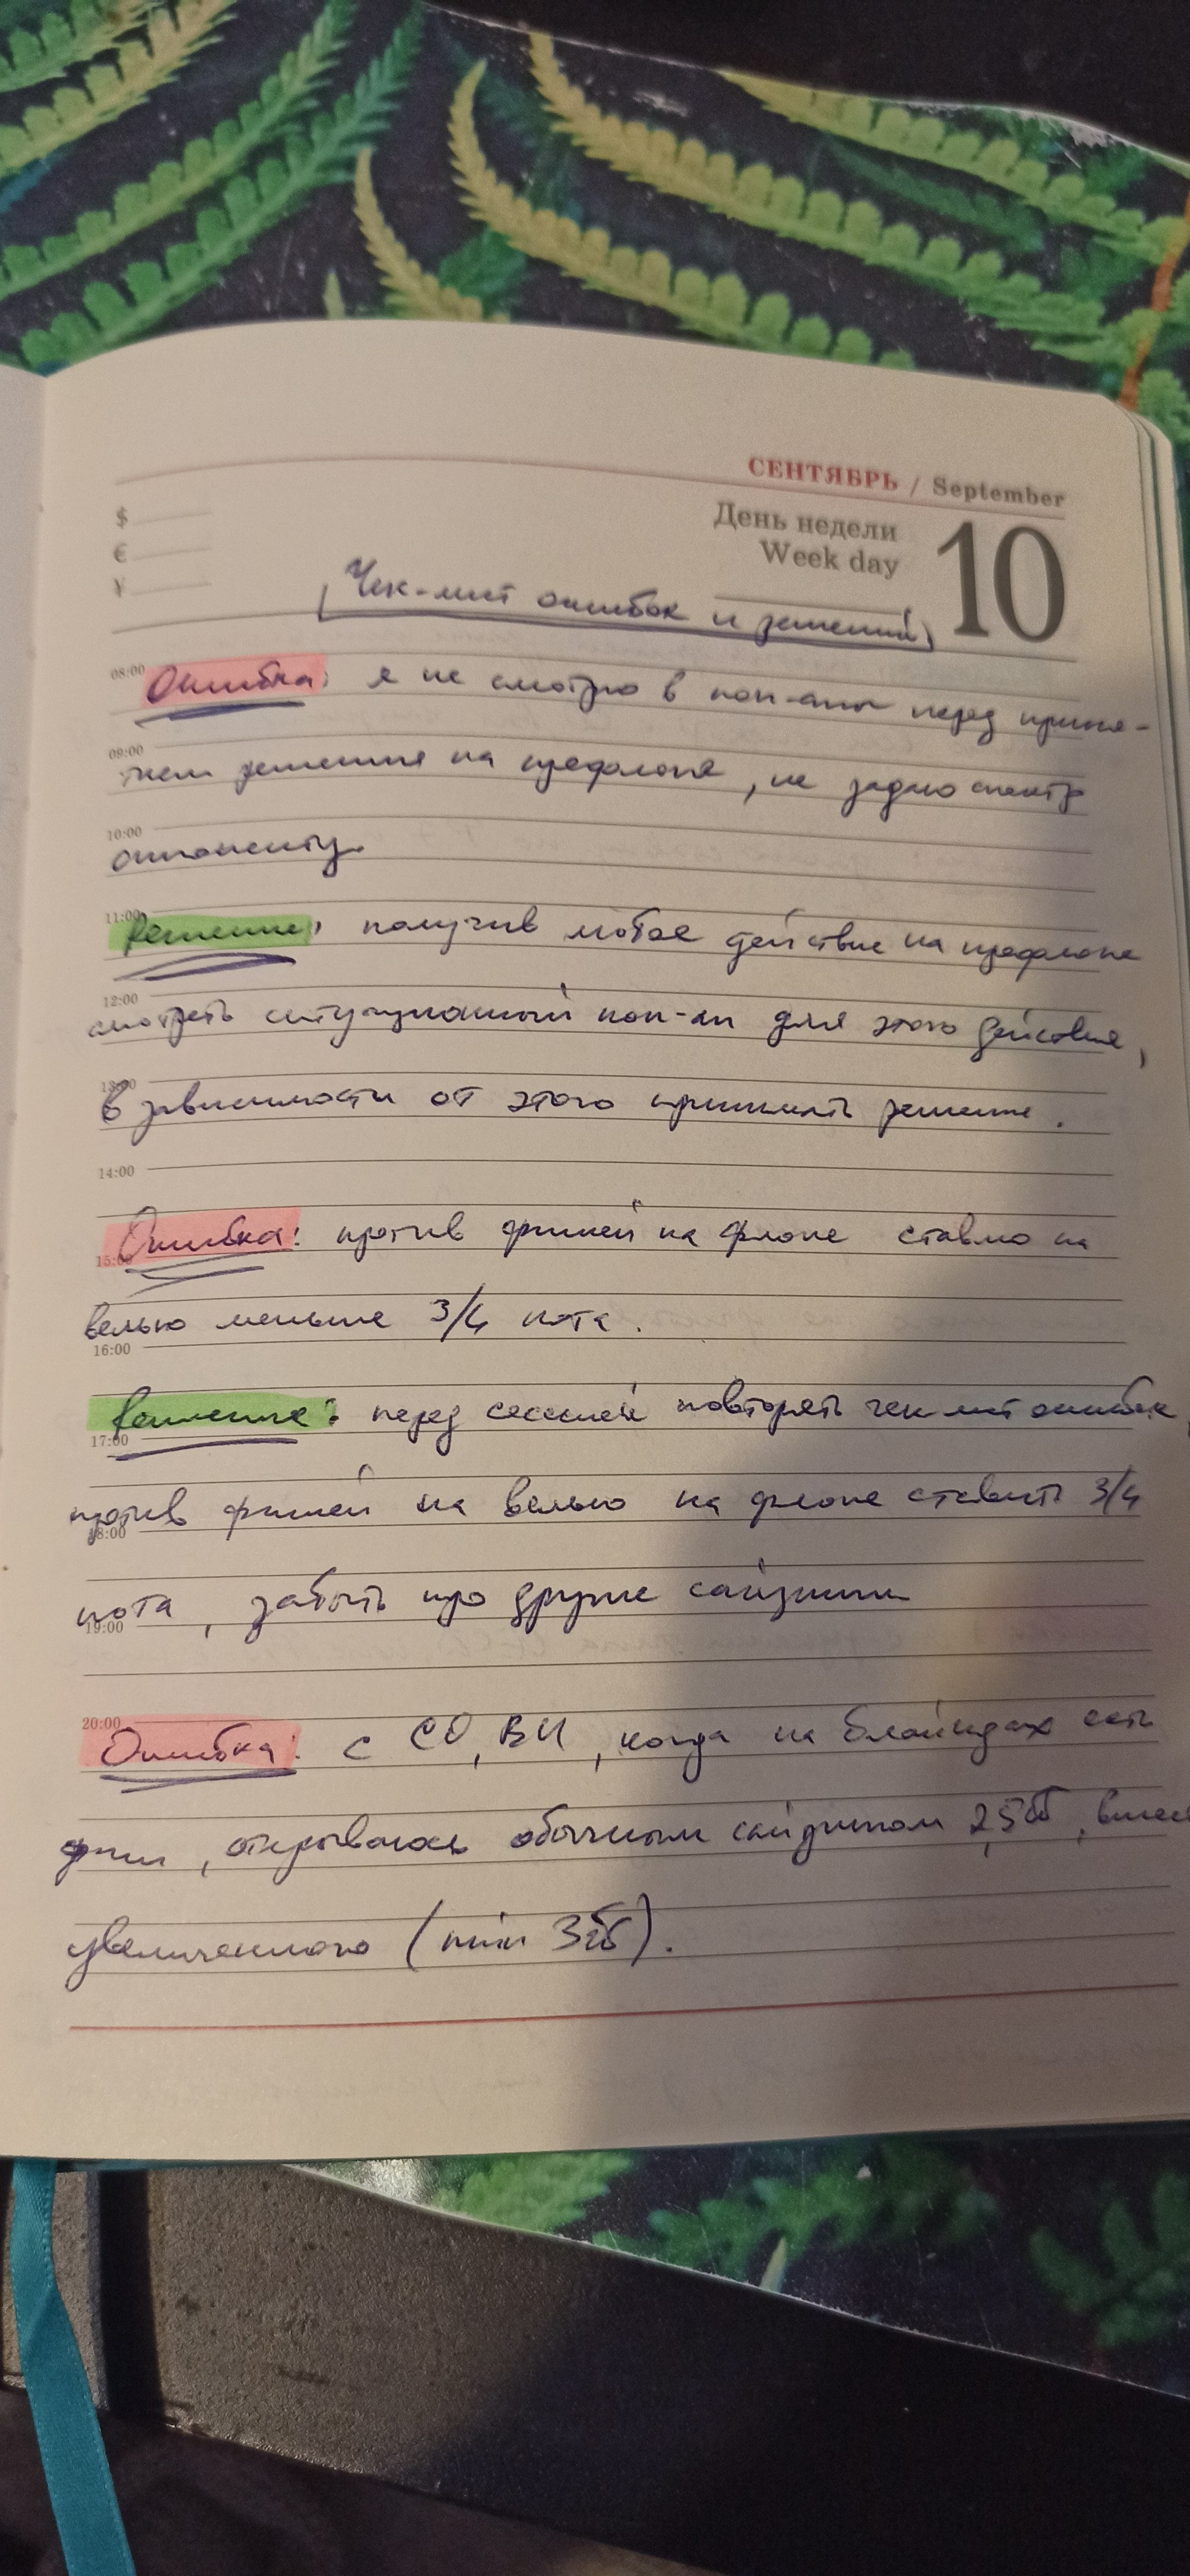 СЕНТЯБРЬ / September
$
День недели
10
€
Week day
¥
Чек-лист ошибок и решений
08:00
Ошибка: я не смотрю в поп-апы перед приня-
09:00
тием решения на префлопе, не задаю спектр
10:00
оппоненту.
11:00
Решение: получив любое действие на префлопе
12:00
смотреть ситуационный поп-ап для этого действия,
13:00
в зависимости от этого принимать решение.
14:00
Ошибка: против фишей на флопе ставлю на
15:00
велью меньше 3/4 пота.
16:00
Решение: перед сессией повторять чек лист ошибок,
17:00
против фишей на велью на флопе ставить 3/4
18:00
пота, забыть про другие сайзинги
19:00
20:00
Ошибка: с СО, BU, когда на блайндах есть
фиш, открываюсь обычным сайзингом 2,5бб,
увеличенного (min 3бб).